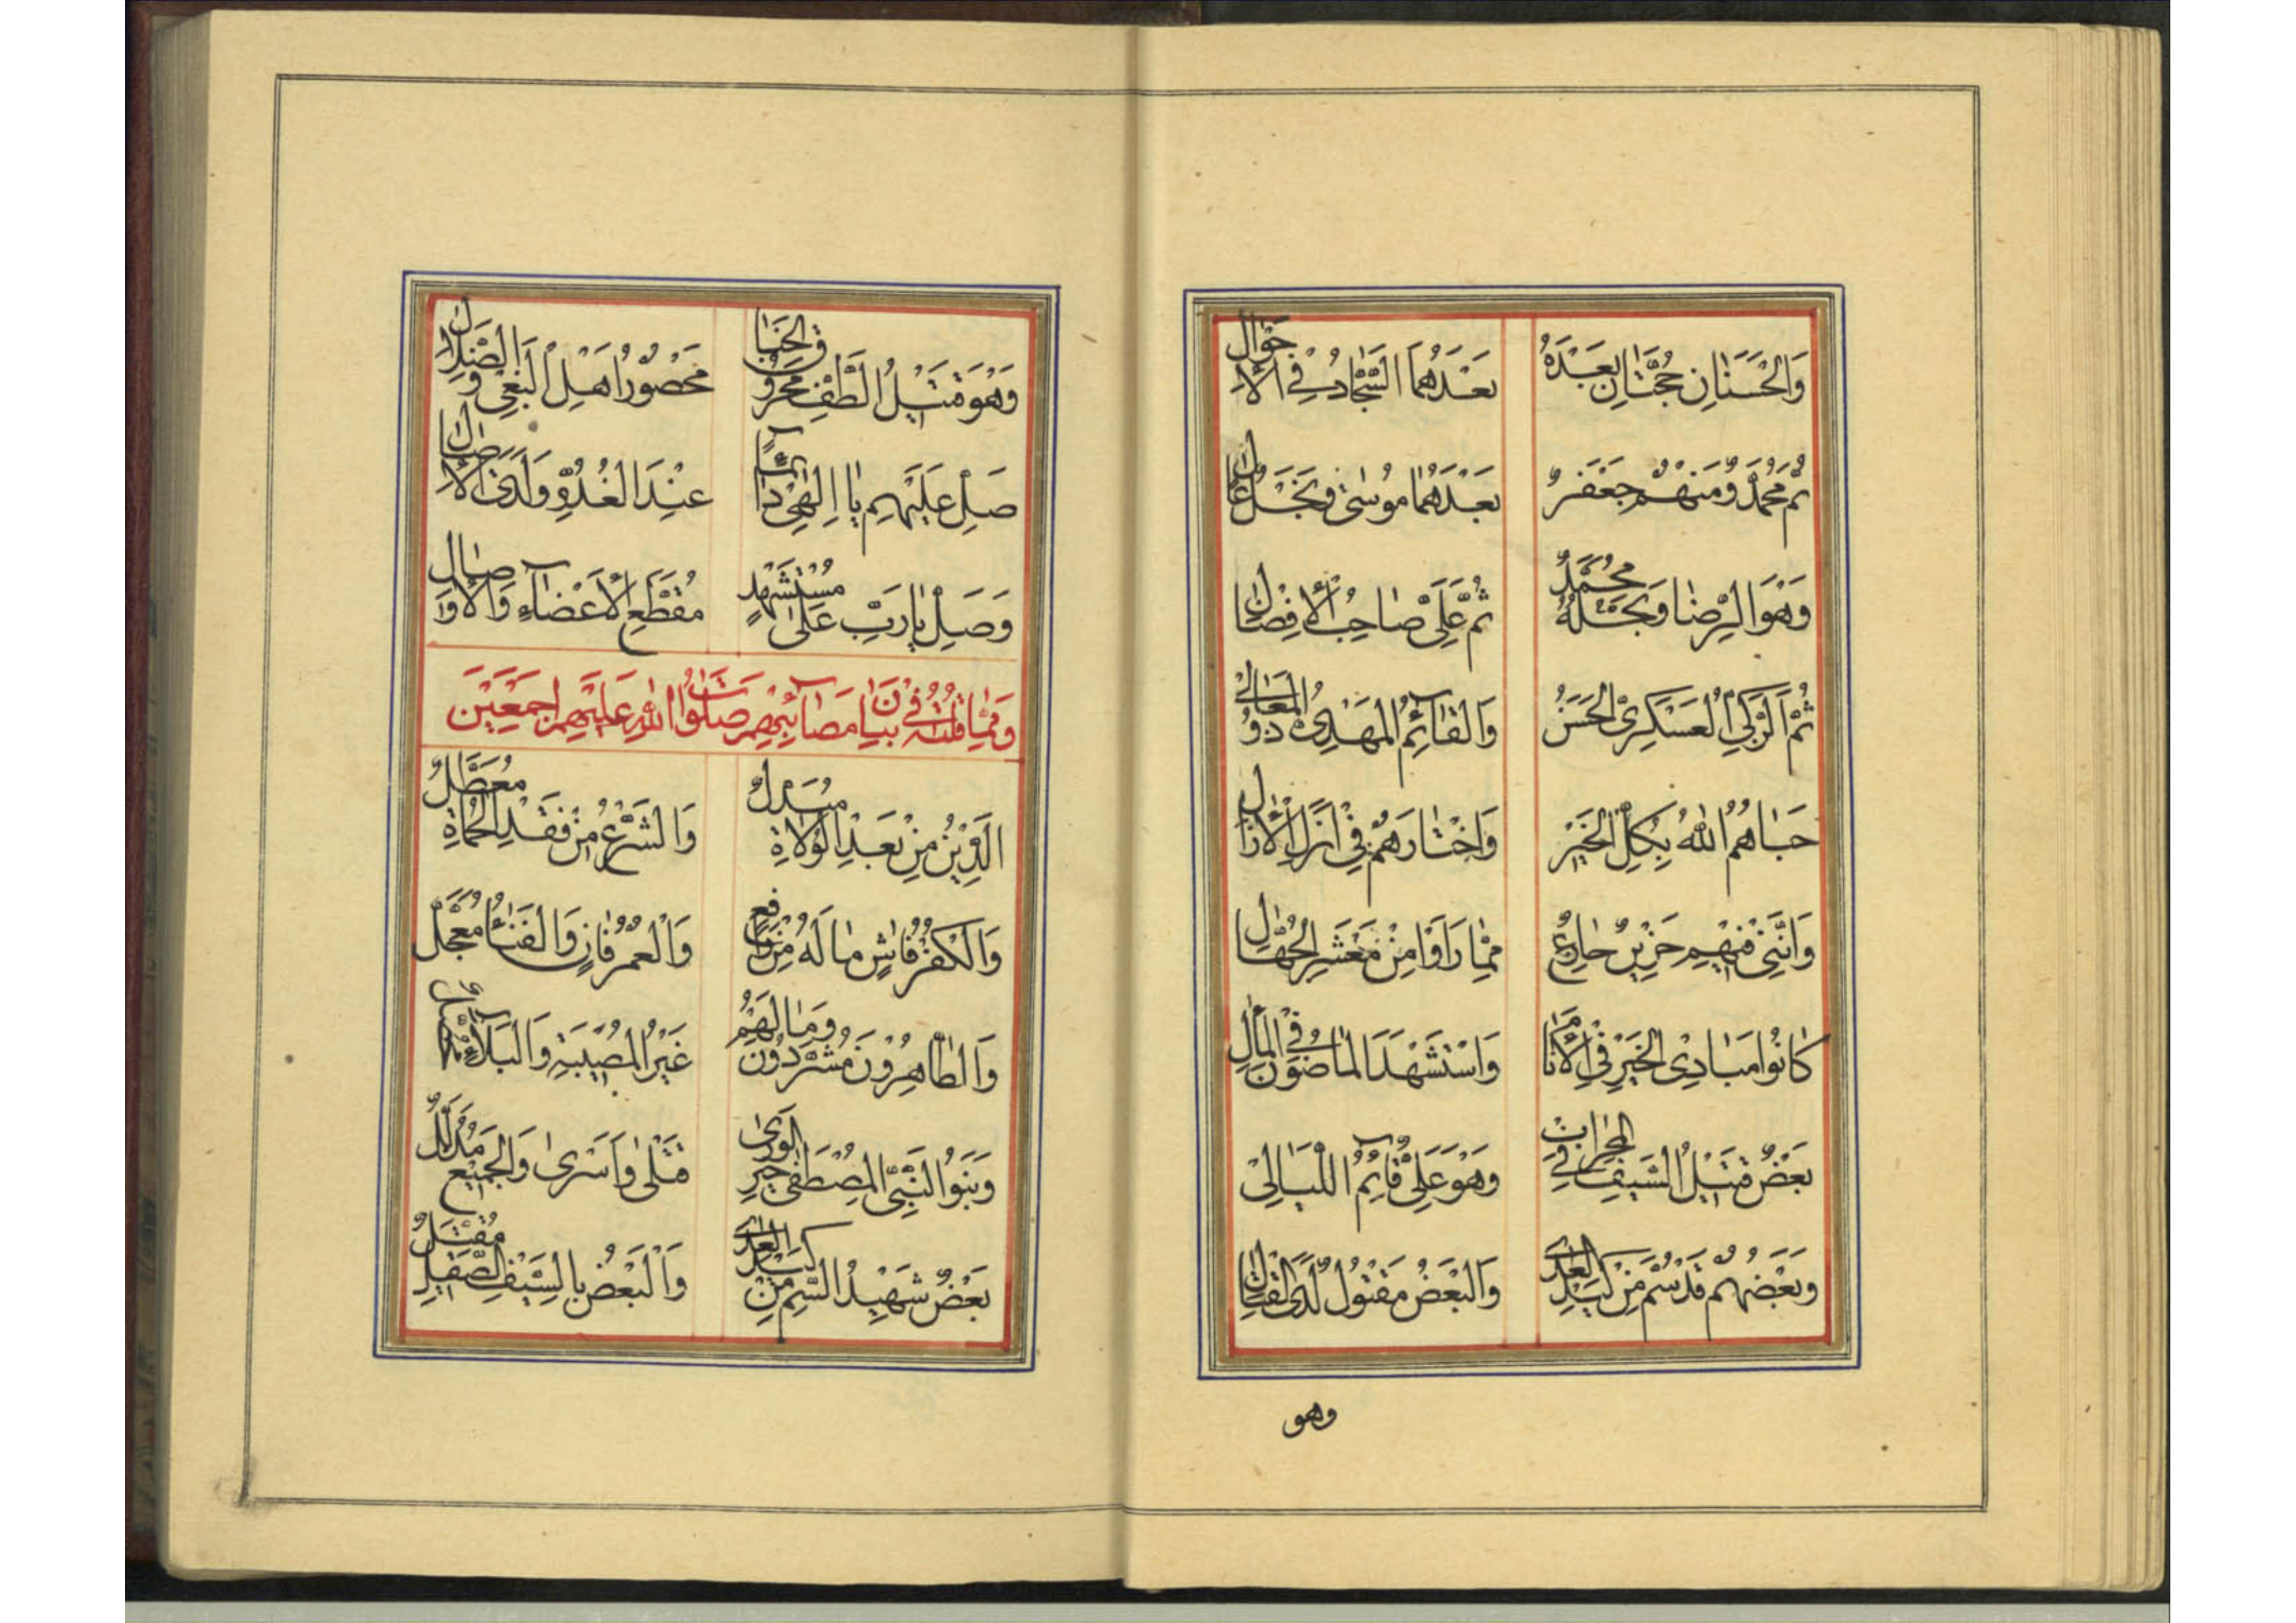 وَالْحَسَنَانِ حُجَّتَانِ بَعْدَهُ بَعْدَهُمَا السَّجَّادُ فِي الْأَحْوَالِ
ثُمَّ مُحَمَّدٌ وَمِنْهُمْ جَعْفَرٌ بَعْدَهُمَا مُوسَى وَنَجْلُ عَالِ
وَهُوَ الرِّضَا وَنَجْلُهُ مُحَمَّدٌ ثُمَّ عَلِيٌّ صَاحِبُ الْأَفْضَالِ
ثُمَّ الزَّكِيُّ الْعَسْكَرِيُّ الْحَسَنُ وَالْقَائِمُ الْمَهْدِيُّ ذُو الْمَعَالِي
حَبَاهُمُ اللهُ بِكُلِّ الْخَيْرِ وَاخْتَارَهُمْ فِي أَزَلِ الْآزَالِ
وَإِنَّنِي فِيهِمْ حَزِينٌ جَازِعٌ مِمَّا رَأَوْا مِنْ مَعْشَرِ الْجُهَّالِ
كَانُوا مَبَادِي الْخَيْرِ فِي الْأَنَامِ وَاسْتَشْهَدَ الْمَاضُونَ فِي الْمَآلِ
بَعْضٌ قَتِيلُ السَّيْفِ فِي الْمِحْرَابِ وَهْوَ عَلِيٌّ قَائِمُ اللَّيَالِي
وَبَعْضُهُمْ قَدْ سُمَّ مِنْ كَيْدِ الْعِدَى وَالْبَعْضُ مَقْتُولٌ لَدَى الْقِتَالِ
وهو
وَهُوَ قَتِيلُ الطَّفِّ مَحْرُوقُ الْخِبَا مَحْصُورُ أَهْلِ الْبَغْيِ وَالضَّلَالِ
صَلِّ عَلَيْهِمْ يَا إِلَهِي دَائِمًا عِنْدَ الْغُدُوِّ وَلَدَى الْآصَالِ
وَصَلِّ يَا رَبِّ عَلَى مُسْتَشْهَدٍ مُقَطَّعِ الْأَعْضَاءِ وَالْأَوْصَالِ
وَمِمَّا قُلْتُهُ فِي بَيَانِ مَصَائِبِهِمْ صَلَوَاتُ اللهِ عَلَيْهِمْ أَجْمَعِينَ
الدِّينُ مِنْ بَعْدِ الْوُلَاةِ مُبَدَّلٌ وَالشَّرْعُ مِنْ فَقْدِ الْحُمَاةِ مُعَطَّلٌ
وَالْكُفْرُ فَاشٍ مَا لَهُ مِنْ رَافِعٍ وَالْعُمْرُ فَانٍ وَالْفَنَاءُ مُعَجَّلٌ
وَالطَّاهِرُونَ مُشَرَّدُونَ وَمَا لَهُمْ غَيْرُ الْمُصِيبَةِ وَالْبَلَاءِ
وَبَنُو النَّبِيِّ الْمُصْطَفَى خَيْرِ الْوَرَى قَتْلَى وَأَسْرَى وَالْجَمِيعُ مُذَلَّلٌ
بَعْضٌ شَهِيدُ السَّمِّ مِنْ كَيْدِ الْعِدَى وَالْبَعْضُ بِالسَّيْفِ الصَّقِيلِ مُقَتَّلٌ